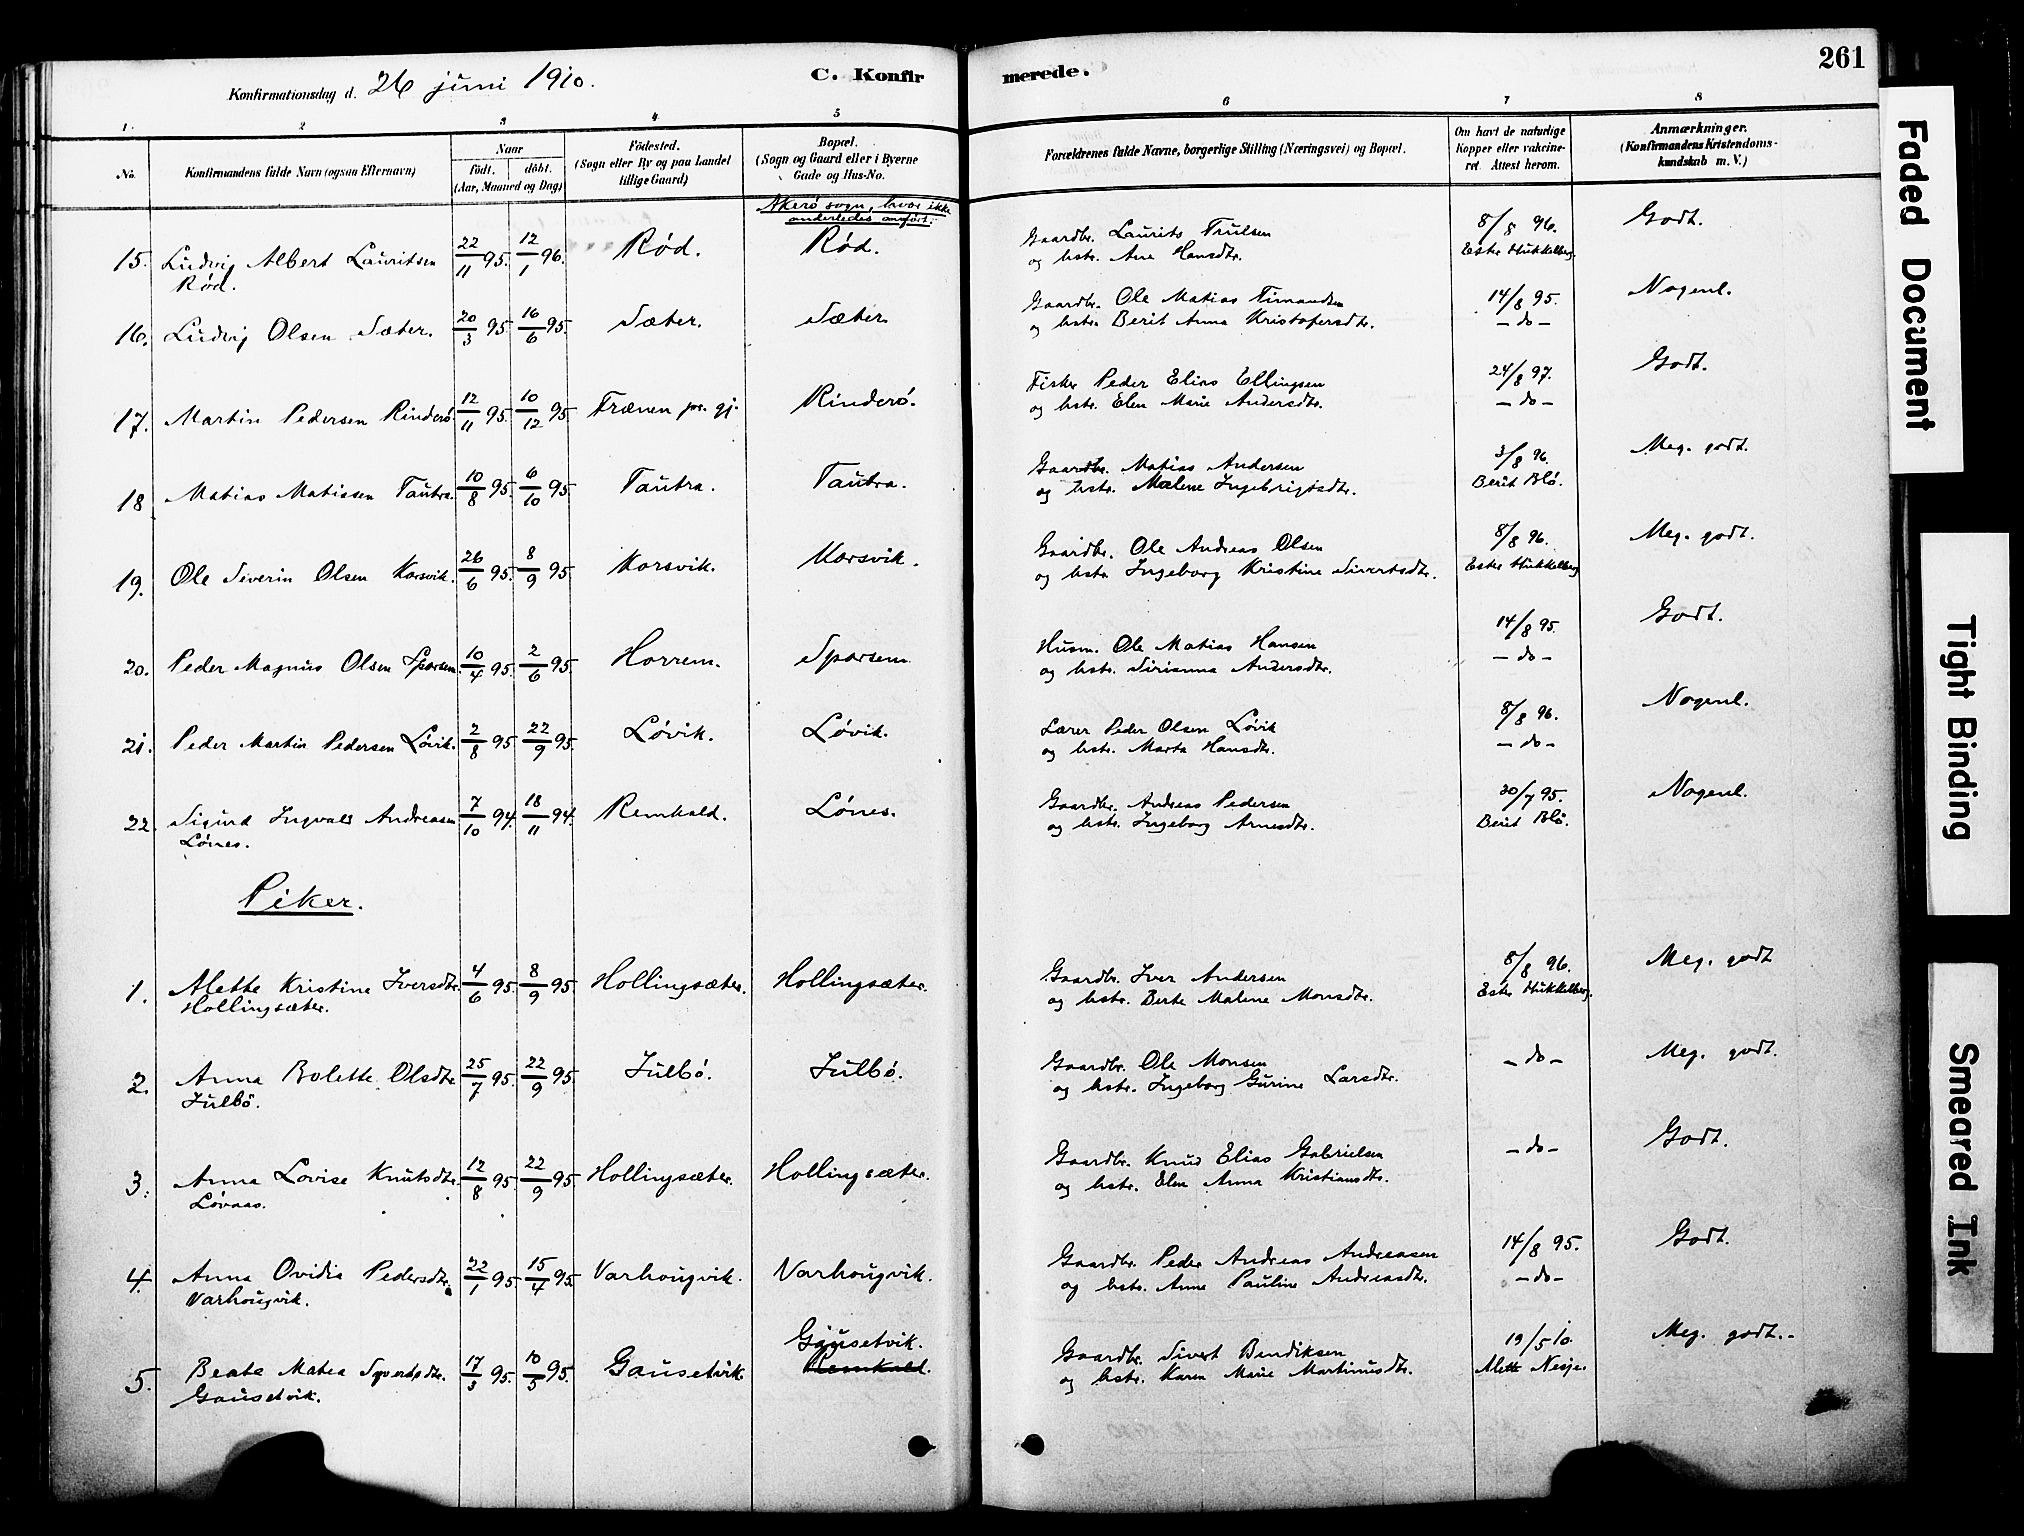 Konfirmationsdag d. 26 juni 1910.
C. Konfirmerede.
261
1. 2 3 4 5 6 7 8
No. Konfirmandens fulde Navn (ogsaa Efternavn) Naar födt. döbt. (Aar, Maaned og Dag) Födested. (Sogn eller By og paa Landet tillige Gaard) Bopæl. (Sogn og Gaard eller i Byerne Gade og Hus-No. Forældrenes fulde Navne, borgerlige Stilling (Næringsvei) og Bopæl. Om havt de naturlige Kopper eller vakcineret. Attest herom. Anmærkninger. (Konfirmandens Kristendomskundskab m. V.)
Akerø sogn, hvor ikke
anderledes anført:
15. Ludvig Albert Lauritsen 22/11 95. 12/1 96. Rød. Rød. Gaardbr. Laurits Trulsen 8/8 96. Godt.
Rød. og hstr. Ane Hansdtr. Ester Hukkelberg.
16. Ludvig Olsen Sæter. 20/3 95. 16/6 95. Sæter. Sæter Gaardbr. Ole Matias Timandsen 14/8 95. Nogenl.
og hstr. Berit Anna Kristofersdtr. - do -
17. Martin Pedersen Rinderö. 12/11 95. 10/12 95. Trænen pr. gj. Rinderö. Fisker Peder Elias Ellingsen 24/8 97. Godt.
og hstr. Elen Marie Andersdtr. - do -
18 Matias Matiasen Tautra. 10/8 95. 6/10 95. Tautra. Tautra. Gaardbr. Matias Andersen 3/8 96. Meg. godt.
og hstr. Malene Ingebrigtsdtr. Berit Blø.
19. Ole Severin Olsen Korsvik. 26/6 95. 8/9 95 Korsvik. Korsvik. Gaardbr. Ole Andreas Olsen 8/8 96. Meg. godt.
og hstr. Ingeborg Kristine Sivertsdtr. Ester Hukkelberg
20. Peder Magnus Olsen Sporsem. 10/4 95. 2/6 95. Horrem. Sporsem Husm. Ole Matias Hansen 14/8 95. Godt.
og hstr. Sirianna Andersdtr. - do -
21. Peder Martin Pedersen Løvik. 2/8 95. 22/9 95. Løvik. Løvik. Lærer Peder Olsen Løvik 8/8 96. Nogenl.
og hstr. Marta Hansdtr. - do -
22. Sigurd Ingvald Andreasen 7/10 94. 18/11 94. Remkald. Lønes. Gaardbr. Andreas Pedersen 20/7 95. Nogenl.
Lønes. og hstr. Ingeborg Arnesdtr. Berit Blø.
Piker.
1. Alette Kristine Iversdtr. 4/6 95. 8/9 95 Hollingsæter. Hollingsæter. Gaardbr. Iver Andersen 8/8 96. Meg. godt
Hollingsæter. og hstr. Berte Malene Monsdtr. Ester Hukkelberg.
2. Anna Bolette Olsdtr. 25/7 95. 22/9 95. Julbö. Julbö. Gaardbr. Ole Monsen - do - Meg. godt.
Julbö. og hstr. Ingeborg Gurine Larsdtr.
3. Anna Lovise Knutsdtr. 12/8 95. 22/9 95 Hollingsæter. Hollingsæter. Gaardbr. Knud Elias Gabrielsen - do - Godt.
Løvaas. og hstr. Elen Anna Kristiansdtr.
4. Anna Ovidia Pedersdtr. 22/1 95. 15/4 95. Varhougvik. Varhougvik. Gaardbr. Peder Andreas Andreasen 14/8 95. Godt.
Varhougvik. og hstr. Anne Pauline Andreasdtr. - do -
Gausetvik.
5. Beate Matea Syvertsdtr. 17/3 95. 10/5 95. Gausetvik. Remkald. Gaardbr. Sivert Bendiksen 19/5 10. Meg. godt.-
Gausetvik. og hstr. Karen Marie Martinusdtr. Alette Nesje.
Faded Document
Tight Binding
Smeared Ink